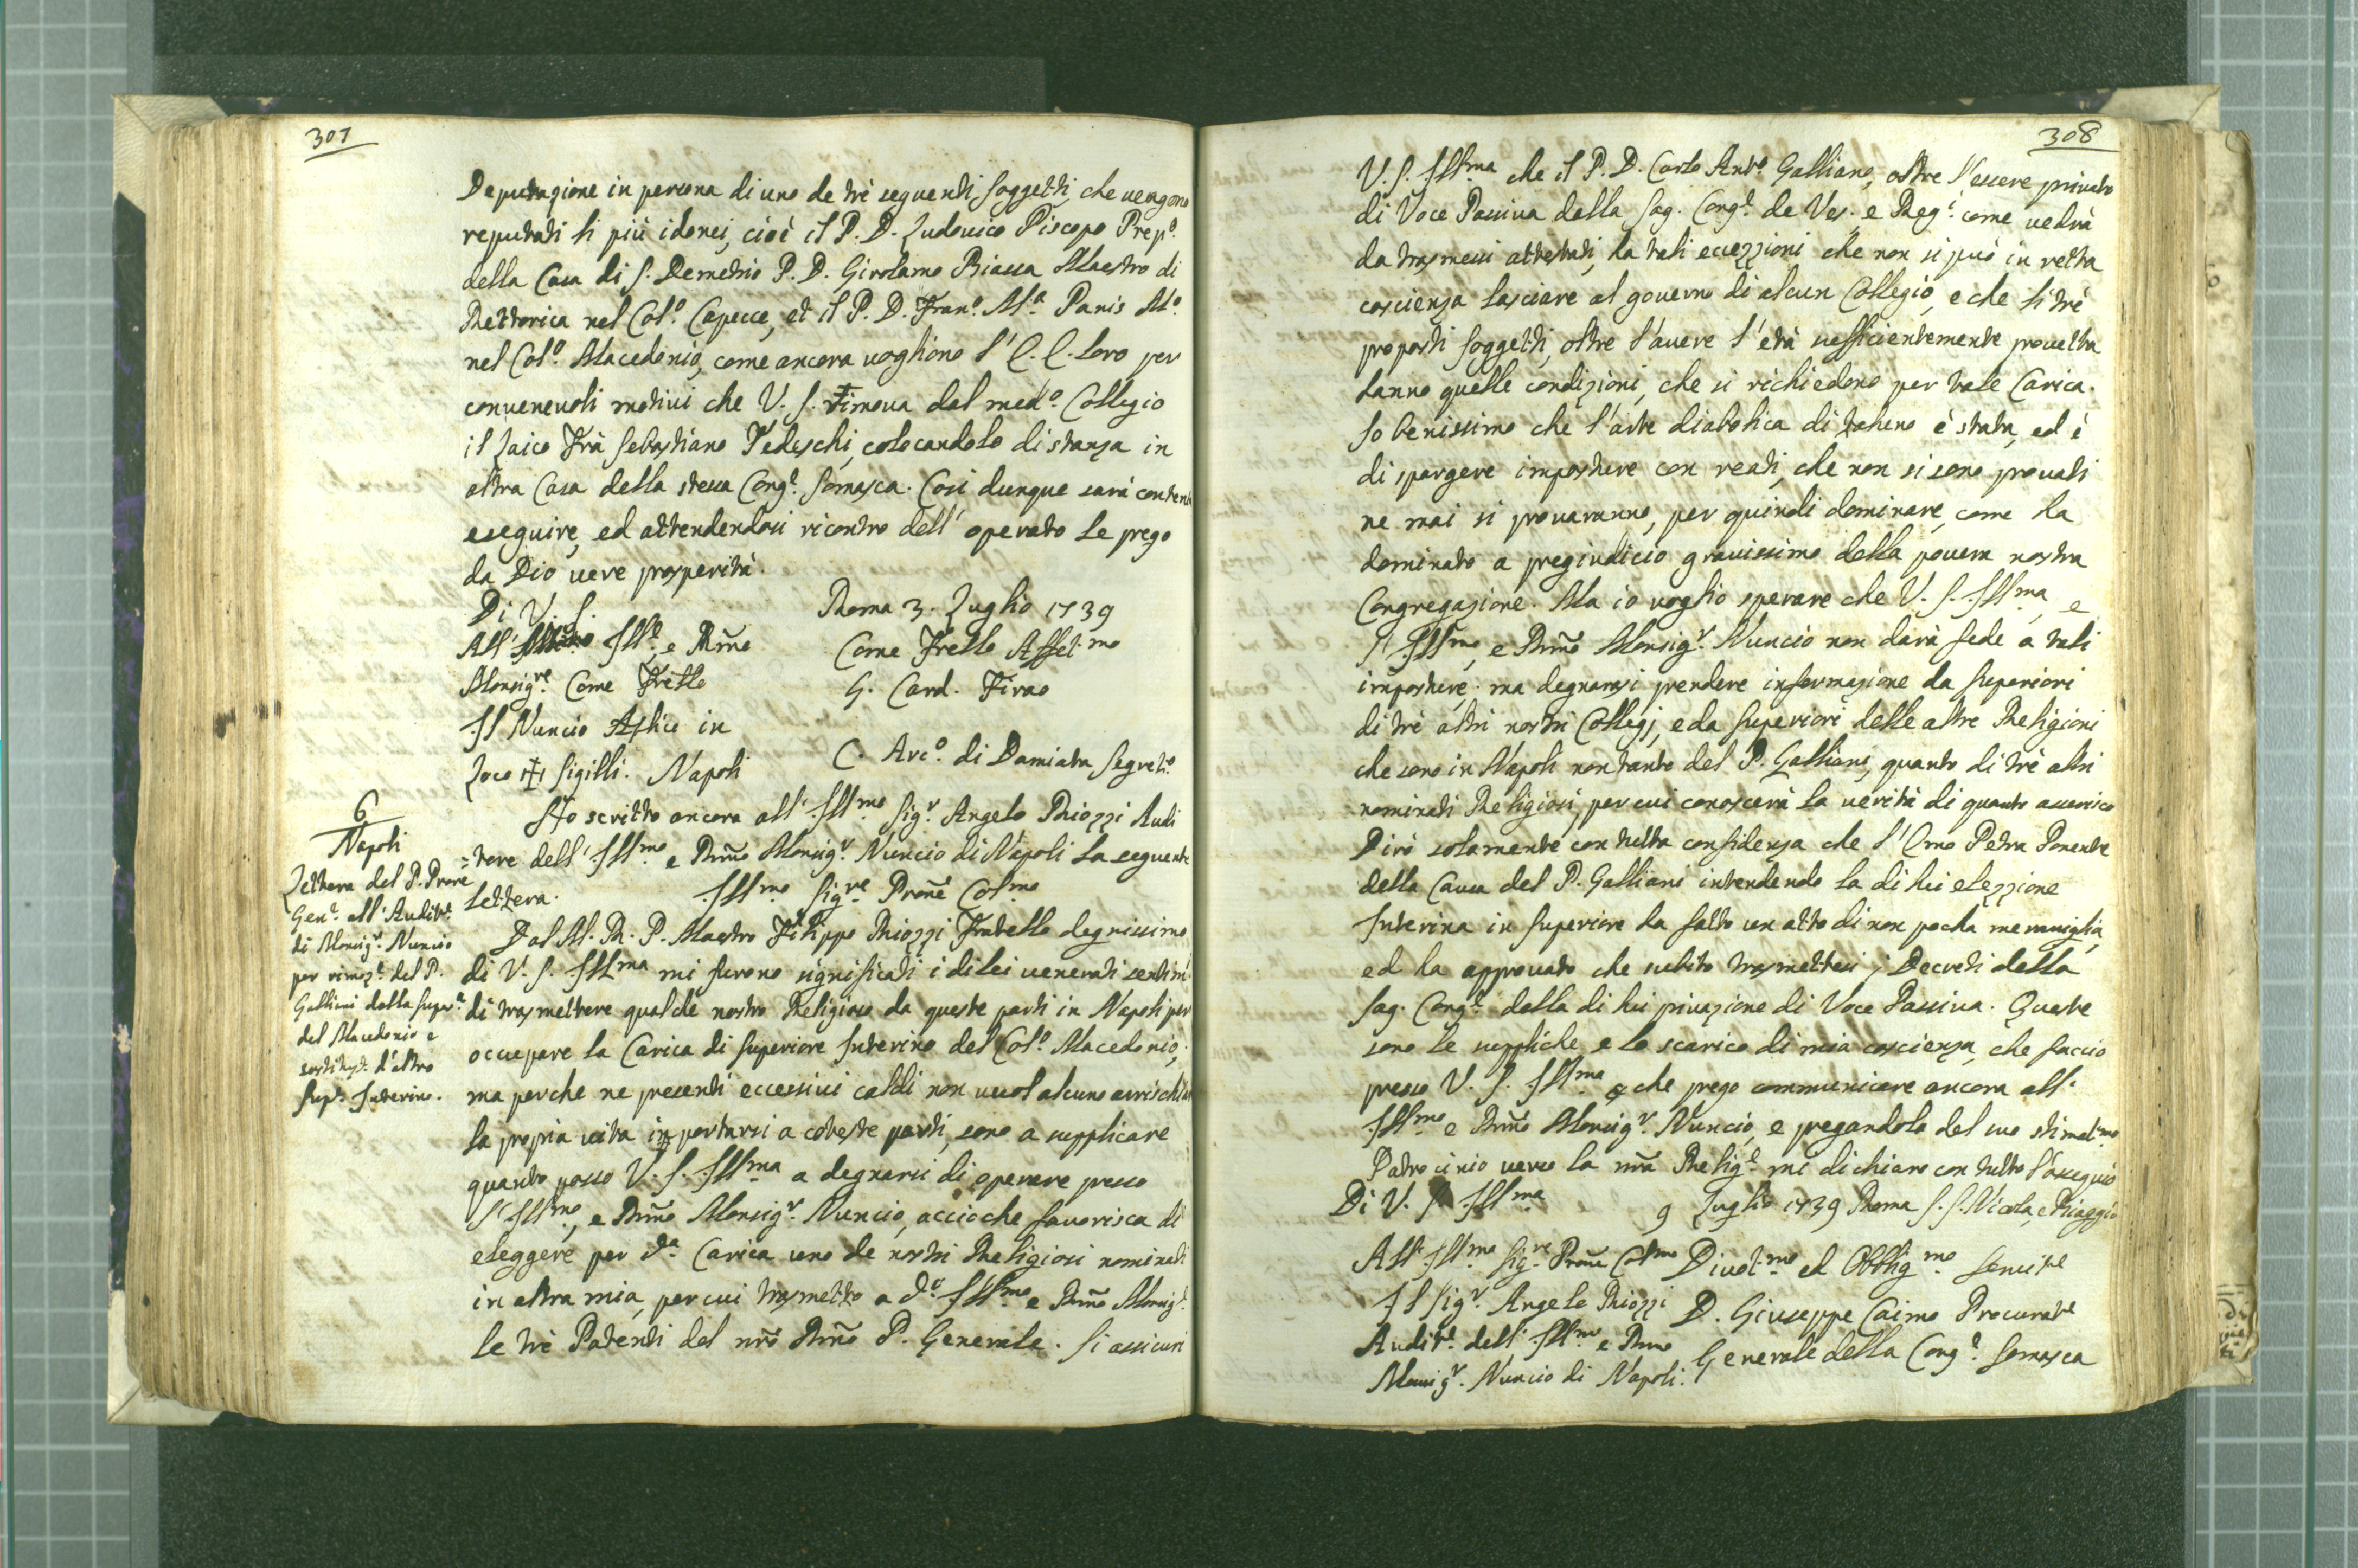 307
Deputazione in persona di uno de trè seguenti soggetti, che vengono
reputati li più idonei, cioè il P. D. Ludovico Piscopo Prep.o
della Casa di S. Demetrio P. D. Girolamo Riassa Maestro di
Rettorica nel Col.o Capecce, et il P. D. Fran.o M.a Panis M.o
nel Col.o Macedonio, come ancora vogliono l'E. E. loro per
convenevoli motivi che V. S. rimova dal med.o Collegio
il Laico Frà Sebastiano Tedeschi, colocandolo di stanza in
altra Casa della stessa Cong.e Somasca. Così dunque sarà contenta
eseguire, ed attendendosi ricontro dell' operato le prego
da Dio vere prosperità.
Di V. S.
Roma 3. Luglio 1739
All' Ill.o e Rmo
Come Frello Affet.mo
Monsig.re Come Frello
G. Card. Firao
Il Nuncio Aplico in
Loco + Sigilli. Napoli
C. Arc.o di Damiata Segret.o
6
Napoli
Lettera del P. Prore
Gen.e all' Audit.e
di Monsig.r Nuncio
per rimoz.e del P.
Galliani dalla super.a
del Macedonio e
sostituz.e d'altro
Sup.e Interino.
Ho scritto ancora all' Ill.mo Sig.r Angelo Riozzi Audi
=tore dell' Ill.mo e Rmo Monsig.r Nuncio di Napoli la seguente
lettera.
Ill.mo Sig.re Prone Col.mo
Dal M. R. P. Maestro Filippo Riozzi Fratello degnissimo
di V. S. Ill.ma mi furono significati i di lei venerati sentim.
di trasmettere qualche nostro Religioso da queste parti in Napoli per
occupare la Carica di Superiore Interino del Col.o Macedonio;
ma perche ne presenti eccessivi caldi non vuol alcuno arrischiar
la propria vita in portarsi a coteste parti, sono a supplicare
quanto posso V. S. Ill.ma a degnarsi di operare presso
l'Ill.mo, e Rmo Monsig.r Nuncio, acciòche favorisca di
eleggere per d.a Carica uno de nostri Religiosi nominati
in altra mia, per cui trasmetto a d.o Ill.mo e Rmo Monsig.r
le trè Patenti del nro Rmo P. Generale. Si assicuri
308
V. S. Ill.ma che il P. D. Carlo Ant.o Galliano, oltre l'essere privato
di Voce Passiva dalla Sag. Cong.e de Ves. e Reg.i come vedrà
da trasmessi attestati, ha tali eccezzioni che non si può in retta
coscienza lasciare al governo di alcun Collegio, e che li trè
proposti soggetti, oltre l'avere l'età sufficientemente provetta
hanno quelle condizioni, che si richiedono per tale Carica.
So benissimo che l'arte diabolica di taluno è stata, ed è
di spargere imposture con reati, che non si sono provati
ne mai si provaranno, per quindi dominare, come ha
dominato a pregiudicio gravissimo della povera nostra
Congregazione. Ma io voglio sperare che V. S. Ill.ma e
l' Ill.mo, e Rmo Monsig.r Nuncio non darà fede a tali
imposture, ma degnarasi prendere informazione da Superiori
di trè altri nostri Collegj, e da Superiori delle altre Religioni
che sono in Napoli non tanto del P. Galliani, quanto di trè altri
nominati Religiosi, per cui conoscerà la verità di quanto asserisco
Dirò solamente con tutta confidenza che l'Emo Petra Ponente
della Causa del P. Galliani intendendo la di lui elezzione
Interina in Superiore ha fatto un atto di non pocha meraviglia,
ed ha approvato che subito trasmettessi i Decreti della
Sag. Cong.e della di lui privazione di Voce Passiva. Queste
sono le suppliche, e lo scarico di mia coscienza, che faccio
presso V. S. Ill.ma e che prego communicare ancora all'
Ill.mo e Rmo Monsig.r Nuncio, e pregandola del suo stimat.mo
Patrocinio verso la nra Relig.e mi dichiaro con tutto l'ossequio
Di V. S. Ill.ma
9 Luglio 1739 Roma S. S. Nicola, e Biaggio
All' Ill.mo Sig.re Prone Col.mo
Divot.mo ed Obblig.mo Servit.e
Il Sig.r Angelo Riozzi
D. Giuseppe Caimo Procurat.e
Audit.e dell' Ill.mo e Rmo
Generale della Cong.e Somasca
Monsig.r Nuncio di Napoli.